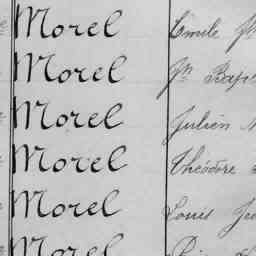 Morel Emile
Morel Jn Bap
Morel Julien
Morel Théodore
Morel Louis
Morel